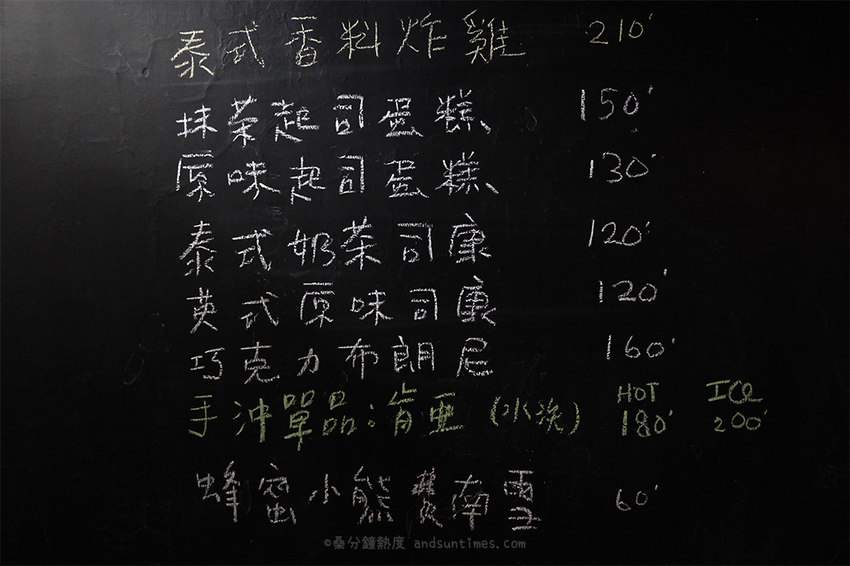 泰式香料炸雞 210'
抹茶起司蛋糕、 150'
原味起司蛋糕、 130'
泰式奶茶司康 120'
英式原味司康 120'
巧克力布朗尼 160'
HOT ICE
手沖單品:肯亞(水洗) 180' 200'
蜂蜜小熊費南雪 60'
©桑分鐘熱度 andsuntimes.com